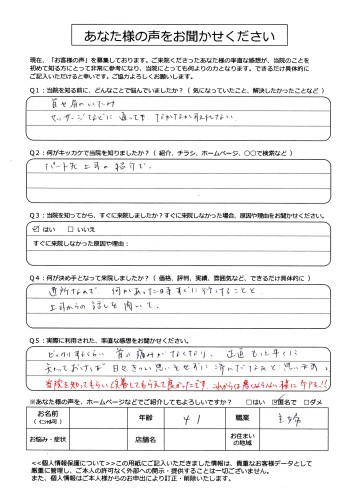 あなた様の声をお聞かせください
現在、「お客様の声」を募集しております。ご来院くださったあなた様の率直な感想が、当院のことを
初めて知る方にとって非常に参考になり、当院にとっても何よりの力となります。できるだけ具体的に
ご記入いただけると幸いです。ご協力よろしくお願いします。
Q1：当院を知る前に、どんなことで悩んでいましたか？（ 気になっていたこと、解決したかったことなど ）
首や肩のいたみ
マッサージなどに通っても なかなかとれない
Q2：何がキッカケで当院を知りましたか？（ 紹介、チラシ、ホームページ、〇〇で検索など ）
パート先上司の紹介で。
Q3：当院を知ってから、すぐに来院しましたか？すぐに来院しなかった場合、原因や理由をお聞かせください。
☑ はい □ いいえ
すぐに来院しなかった原因や理由：
Q4：何が決め手となって来院しましたか？（ 価格、評判、実績、雰囲気など、できるだけ具体的に ）
近所なので 何かあった時すぐに行けることと
上司からの話しを聞いて。
Q5：実際に利用された、率直な感想をお聞かせください。
ビックリするくらい 首の痛みがなくなり、正直もっと早くに
知っておけば 日々きつい思いをせずに済んだなぁと思います。
当院を知ってもらい改善してもらえて良かったです。これからは悪くならない様にケアを!!
※あなた様の声を、ホームページなどでご紹介してもよろしいですか？ □はい ☑匿名で □ダメ
お名前
（ｲﾆｼｬﾙ可）
年齢
41
職業
主婦
お悩み・症状
店舗名
お住まい
の地域
<<個人情報保護について>>この用紙にご記入いただきました情報は、貴重なお客様データとして
厳重に管理し、ご本人の許可なく外部への開示・提供することは一切ございません。
また、個人情報はご本人様からのお申出により訂正・削除いたします。